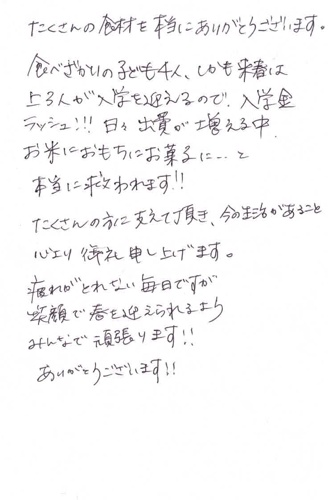 たくさんの食材を本当にありがとうございます。
食べざかりの子ども4人、しかも来春は
上3人が入学を迎えるので、入学金
ラッシュ!!! 日々出費が増える中
お米におもちにお菓子に…と
本当に救われます!!
たくさんの方に支えて頂き、今の生活があること
心より御礼申し上げます。
疲れがとれない毎日ですが
笑顔で春を迎えられるよう
みんなで頑張ります!!
ありがとうございます!!